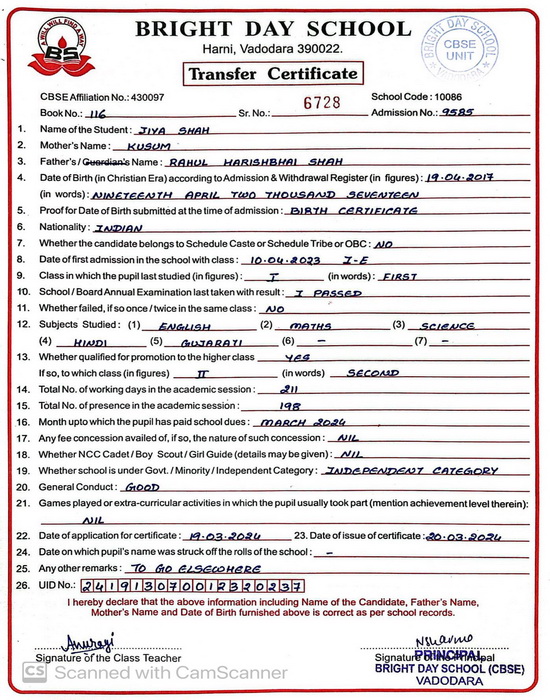 A WILL WILL FIND A WAY
BS
BRIGHT DAY SCHOOL
Harni, Vadodara 390022.
Transfer Certificate
BRIGHT DAY SCHOOL
CBSE
UNIT
VADODARA
CBSE Affiliation No.: 430097 School Code : 10086
Book No.: 116 Sr. No.: 6728 Admission No.: 9585
1. Name of the Student : JIYA SHAH
2. Mother's Name : KUSUM
3. Father's / Guardian's Name : RAHUL HARISHBHAI SHAH
4. Date of Birth (in Christian Era) according to Admission & Withdrawal Register (in figures) : 19.04.2017
(in words) : NINETEENTH APRIL TWO THOUSAND SEVENTEEN
5. Proof for Date of Birth submitted at the time of admission : BIRTH CERTIFICATE
6. Nationality : INDIAN
7. Whether the candidate belongs to Schedule Caste or Schedule Tribe or OBC : NO
8. Date of first admission in the school with class : 10.04.2023 I-E
9. Class in which the pupil last studied (in figures) : I (in words) : FIRST
10. School / Board Annual Examination last taken with result : I PASSED
11. Whether failed, if so once / twice in the same class : NO
12. Subjects Studied : (1) ENGLISH (2) MATHS (3) SCIENCE
(4) HINDI (5) GUJARATI (6) – (7) –
13. Whether qualified for promotion to the higher class YES
If so, to which class (in figures) II (in words) SECOND
14. Total No. of working days in the academic session : 211
15. Total No. of presence in the academic session : 198
16. Month upto which the pupil has paid school dues : MARCH 2024
17. Any fee concession availed of, if so, the nature of such concession : NIL
18. Whether NCC Cadet / Boy Scout / Girl Guide (details may be given) : NIL
19. Whether school is under Govt. / Minority / Independent Category : INDEPENDENT CATEGORY
20. General Conduct : GOOD
21. Games played or extra-curricular activities in which the pupil usually took part (mention achievement level therein) :
NIL
22. Date of application for certificate : 19.03.2024 23. Date of issue of certificate : 20.03.2024
24. Date on which pupil's name was struck off the rolls of the school : –
25. Any other remarks : TO GO ELSEWHERE
26. UID No.: 241913070012320237
I hereby declare that the above information including Name of the Candidate, Father's Name,
Mother's Name and Date of Birth furnished above is correct as per school records.
Signature of the Class Teacher
Signature of the Principal
PRINCIPAL
BRIGHT DAY SCHOOL (CBSE)
VADODARA
CS Scanned with CamScanner